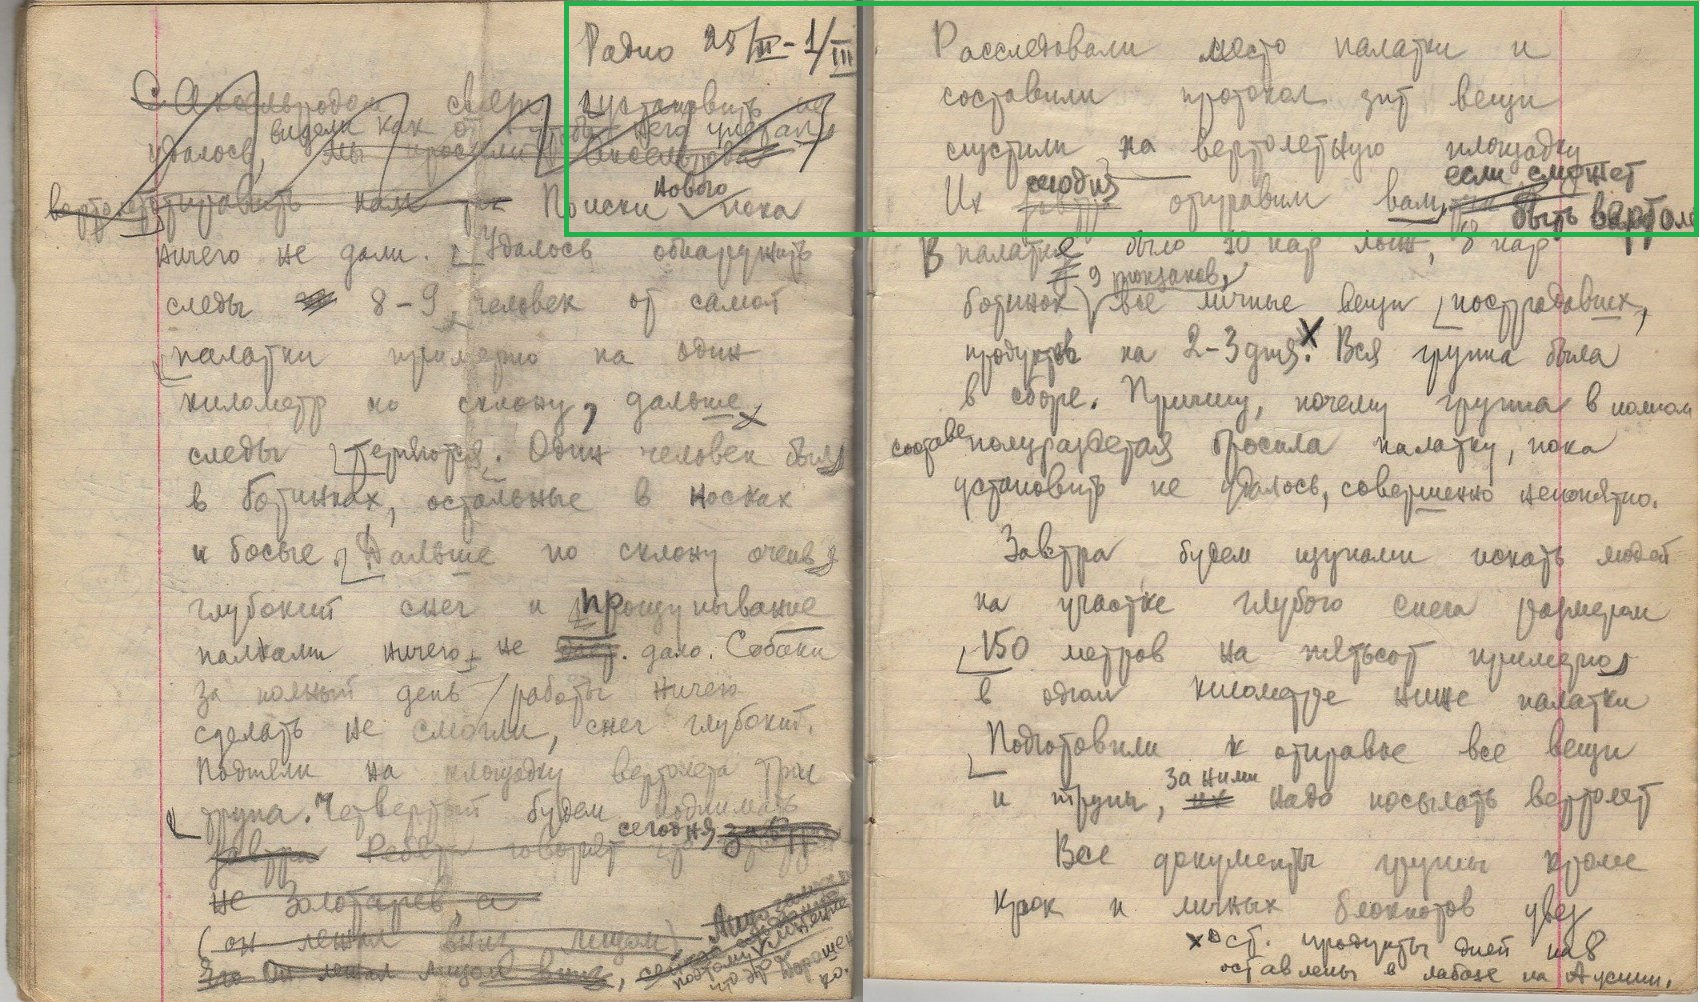 Радио 28/II - 1/III
С Аксельродом связь установить не
удалось, видели как от него улетал
мы просили чтобы Аксельрод
вертолет отправить нам так Поиски нового пока
ничего не дали. Удалось обнаружить
следы 8-9 человек от самой
палатки примерно на один
километр по склону, дальше
следы теряются. Один человек был
в ботинках, остальные в носках
и босые. Дальше по склону очень
глубокий снег и прощупывание
палками ничего не дало. Собаки
за полный день работы ничего
сделать не смогли, снег глубокий.
Подняли на площадку вертолета три
трупа. Четвертый будем поднимать
сегодня, завтра
завтра Ребята говорят что
не Золотарев, а
(он лежал вниз лицом)
Его Он лежал лицом вниз,
поэтому
что это Дорошен
ко.
Расследовали место палатки и
составили протокол эти вещи
спустили на вертолетную площадку
Их завтра сегодня отправим вам, если сможет
быть вертол
В палатке было 10 пар лыж, 8 пар
ботинок, 9 рюкзаков, все личные вещи пострадавших,
продуктов на 2-3 дня. х Вся группа была
в сборе. Причину, почему группа в полном
составе полураздетая бросила палатку, пока
установить не удалось, совершенно непонятно.
Завтра будем щупами искать людей
на участке глубого снега размером
150 метров на пятьсот примерно
в одном километре ниже палатки
Подготовили к отправке все вещи
и трупы, их за ними надо посылать вертолет
Все документы группы кроме
крок и личных блокнотов увез
х Ост. продукты дней на 8
оставлены в лабазе на Ауспии.